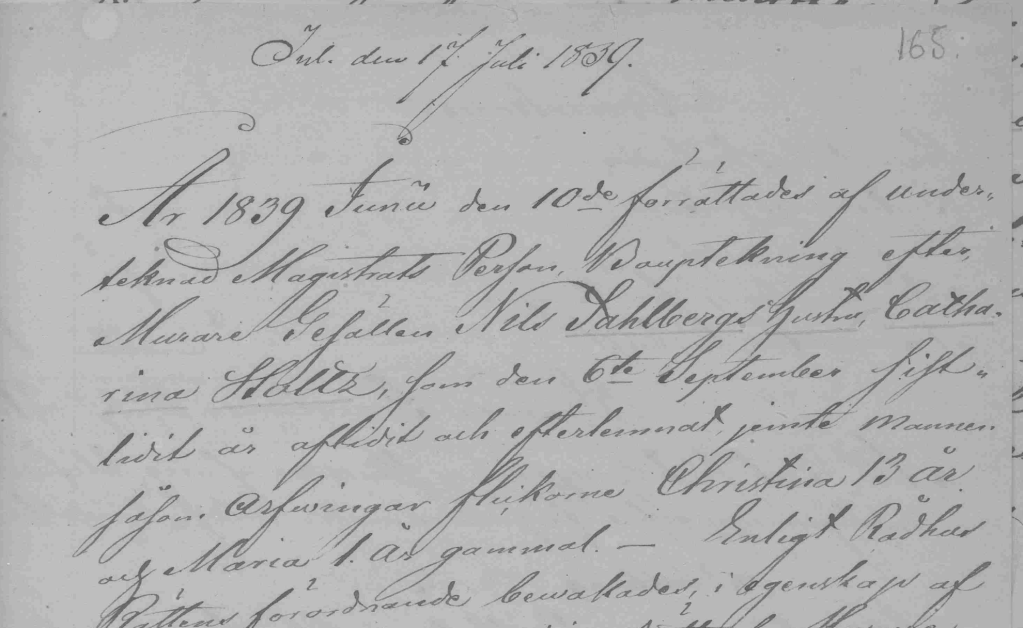 165.
Inl. den 17 Juli 1839.
År 1839 Junii den 10de förrättades af under-
teknad Magistrats Person, Bouptekning efter
Murare Gesällen Nils Dahlbergs hustru, Catha-
rina Stoltz, som den 6te September sist-
lidit år aflidit och efterlemnat, jemte mannen
såsom Arfwingar flickorne Christina 13 år
och Maria 1. År gammal. — Enligt Rådhus
Rättens förordnande bewakades, i egenskap af